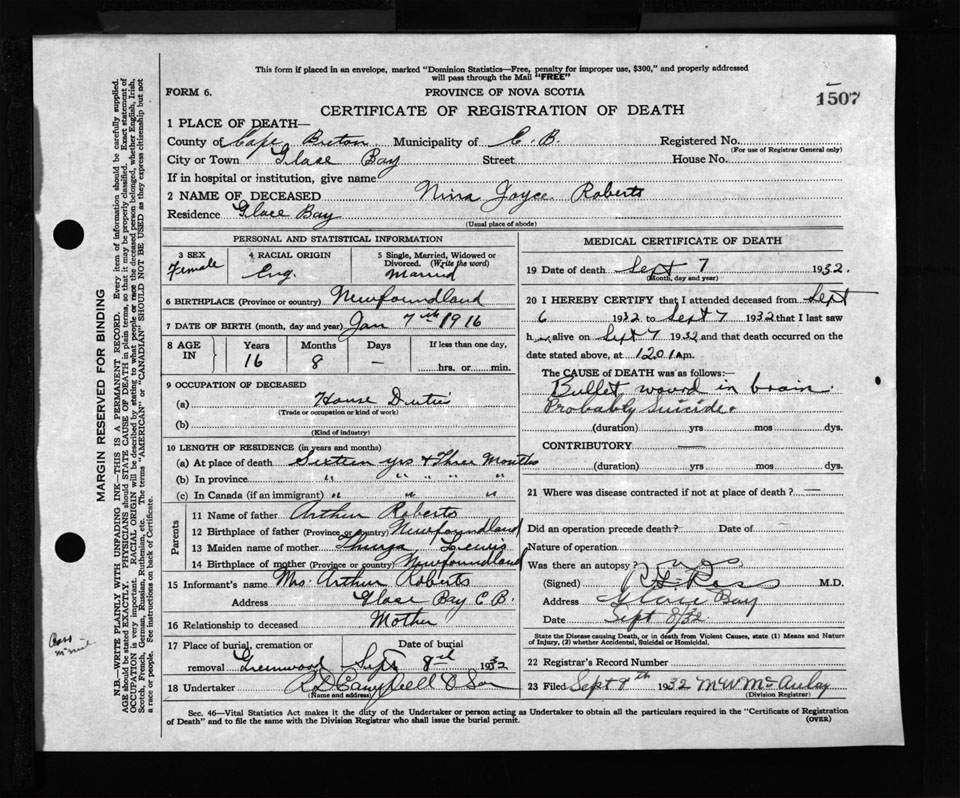 This form if placed in an envelope, marked "Dominion Statistics—Free, penalty for improper use, $300," and properly addressed
will pass through the Mail "FREE"
1507
FORM 6.
PROVINCE OF NOVA SCOTIA
CERTIFICATE OF REGISTRATION OF DEATH
1 PLACE OF DEATH—
County of Cape Breton Municipality of C. B. Registered No.
(For use of Registrar General only)
City or Town Glace Bay Street House No.
If in hospital or institution, give name
2 NAME OF DECEASED Nina Joyce Roberts
Residence Glace Bay
(Usual place of abode)
PERSONAL AND STATISTICAL INFORMATION
3 SEX Female
4 RACIAL ORIGIN Eng.
5 Single, Married, Widowed or
Divorced. (Write the word)
Married
6 BIRTHPLACE (Province or country) Newfoundland
7 DATE OF BIRTH (month, day and year) Jan 7th 1916
8 AGE IN Years Months Days If less than one day,
16 8 — hrs. or min.
9 OCCUPATION OF DECEASED
(a) House Duties
(Trade or occupation or kind of work)
(b)
(Kind of industry)
10 LENGTH OF RESIDENCE (in years and months)
(a) At place of death Sixteen yrs & Three Months
(b) In province " " " " "
(c) In Canada (if an immigrant) " " "
Parents
11 Name of father Arthur Roberts
12 Birthplace of father (Province or country) Newfoundland
13 Maiden name of mother Lewis
14 Birthplace of mother (Province or country) Newfoundland
15 Informant's name Mrs Arthur Roberts
Address Glace Bay C B.
16 Relationship to deceased Mother
17 Place of burial, cremation or removal Greenwood
Date of burial Sept 8 1932
18 Undertaker R D Campbell & Son
(Name and address)
MEDICAL CERTIFICATE OF DEATH
19 Date of death Sept 7 1932.
(Month, day and year)
20 I HEREBY CERTIFY that I attended deceased from Sept
6 1932 to Sept 7 1932 that I last saw
h er alive on Sept 7 1932 and that death occurred on the
date stated above, at 12.01 a m.
The CAUSE of DEATH was as follows:—
Bullet wound in brain.
Probably suicide.
(duration) yrs mos dys.
CONTRIBUTORY —
(duration) yrs mos dys.
21 Where was disease contracted if not at place of death? —
Did an operation precede death? Date of —
Nature of operation
Was there an autopsy?
(Signed) Ross M.D.
Address Glace Bay
Date Sept 8/32
State the Disease causing Death, or in death from Violent Causes, state (1) Means and Nature
of Injury, (2) whether Accidental, Suicidal or Homicidal.
22 Registrar's Record Number
23 Filed Sept 1932 M W McAulay
(Division Registrar)
Sec. 46—Vital Statistics Act makes it the duty of the Undertaker or person acting as Undertaker to obtain all the particulars required in the "Certificate of Registration
of Death" and to file the same with the Division Registrar who shall issue the burial permit.
(OVER)
MARGIN RESERVED FOR BINDING
N.B.—WRITE PLAINLY WITH UNFADING INK—THIS IS A PERMANENT RECORD. Every item of information should be carefully supplied.
AGE should be stated EXACTLY. PHYSICIANS should STATE CAUSE OF DEATH in plain terms, so that it may be properly classified. Exact statement of
OCCUPATION is very important. RACIAL ORIGIN will be described by stating to what people or race the deceased person belonged, whether English, Irish,
Scotch, French, German, Russian, Ruthenian, etc. The terms "AMERICAN" or "CANADIAN" SHOULD NOT BE USED as they express citizenship but not
a race or people. See instructions on back of Certificate.